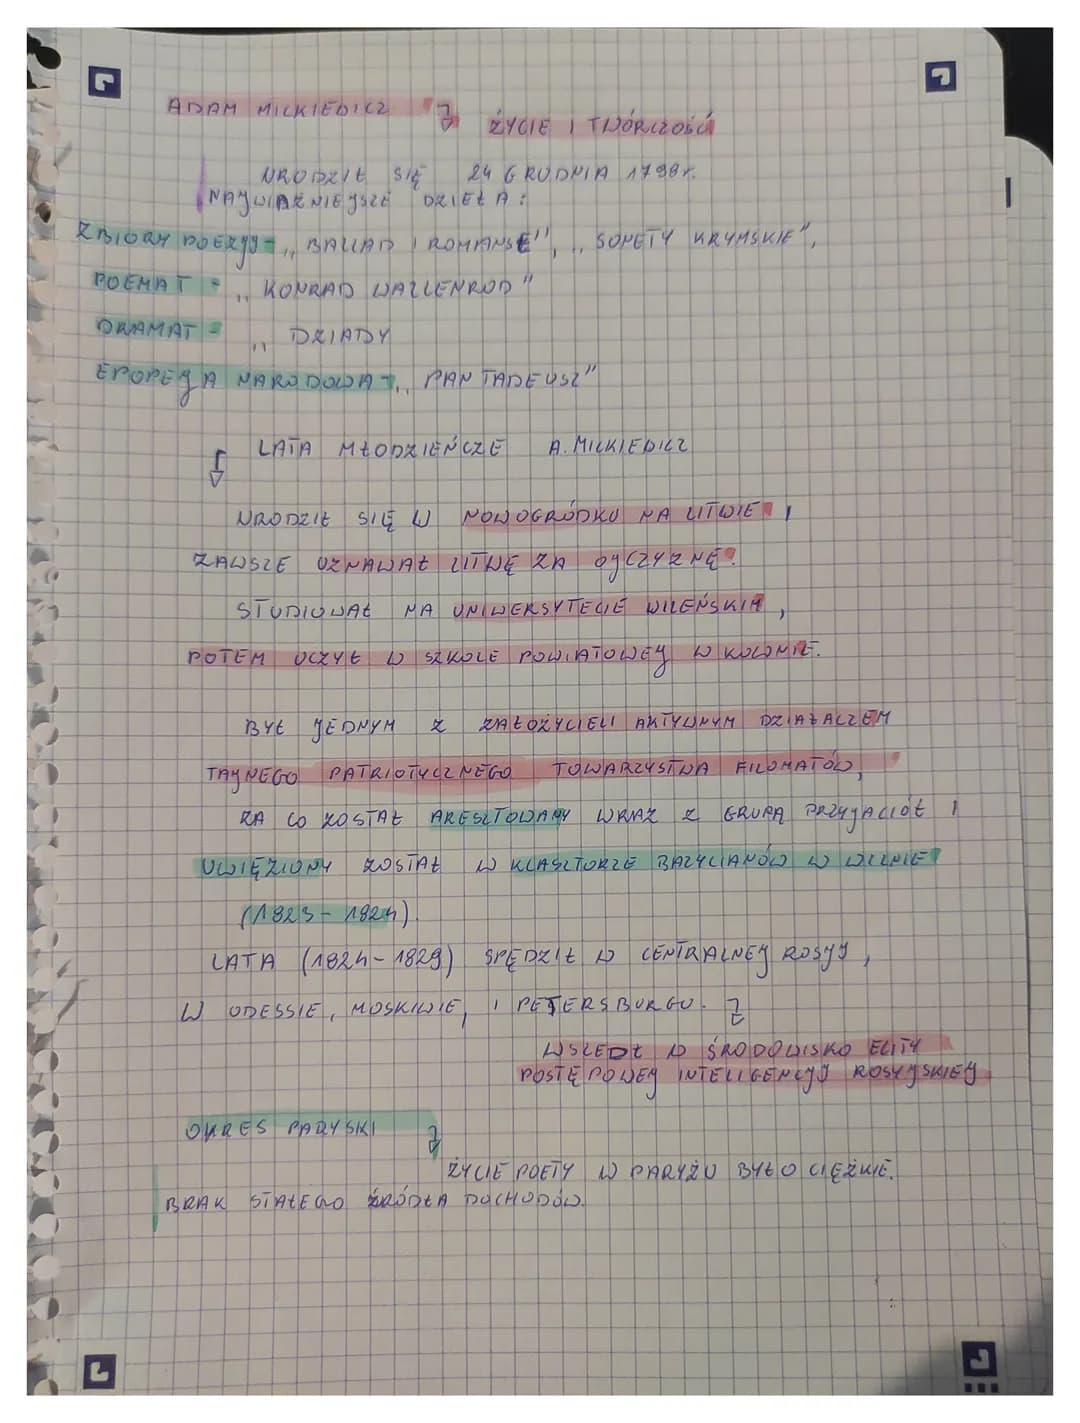 ADAM MICKIEWICZ
ŻYCIE I TWÓRCZOŚĆ
URODZIŁ SIĘ 24 GRUDNIA 1798r.
NAJWAŻNIEJSZE DZIEŁA:
ZBIORY POEZJI - „BALLAD I ROMANSE", „SONETY KRYMSKIE",
POEMAT - „KONRAD WALLENROD"
DRAMAT - „DZIADY
EPOPEJA NARODOWA - „PAN TADEUSZ"
LATA MŁODZIEŃCZE A. MICKIEWICZ
URODZIŁ SIĘ W NOWOGRÓDKU NA LITWIE,
ZAWSZE UZNAWAŁ LITWĘ ZA OJCZYZNĘ.
STUDIOWAŁ NA UNIWERSYTECIE WILEŃSKIM,
POTEM UCZYŁ W SZKOLE POWIATOWEJ W KOWNIE.
BYŁ JEDNYM Z ZAŁOŻYCIELI AKTYWNYM DZIAŁACZEM
TAJNEGO PATRIOTYCZNEGO TOWARZYSTWA FILOMATÓW,
ZA CO ZOSTAŁ ARESZTOWANY WRAZ Z GRUPĄ PRZYJACIÓŁ I
UWIĘZIONY ZOSTAŁ W KLASZTORZE BAZYLIANÓW W WILNIE
(1823-1824).
LATA (1824-1829) SPĘDZIŁ W CENTRALNEJ ROSJI,
W ODESSIE, MOSKWIE, I PETERSBURGU.
WSZEDŁ W ŚRODOWISKO ELITY
POSTĘPOWEJ INTELIGENCJI ROSYJSKIEJ
OKRES PARYSKI
ŻYCIE POETY W PARYŻU BYŁO CIĘŻKIE.
BRAK STAŁEGO ŹRÓDŁA DOCHODÓW.